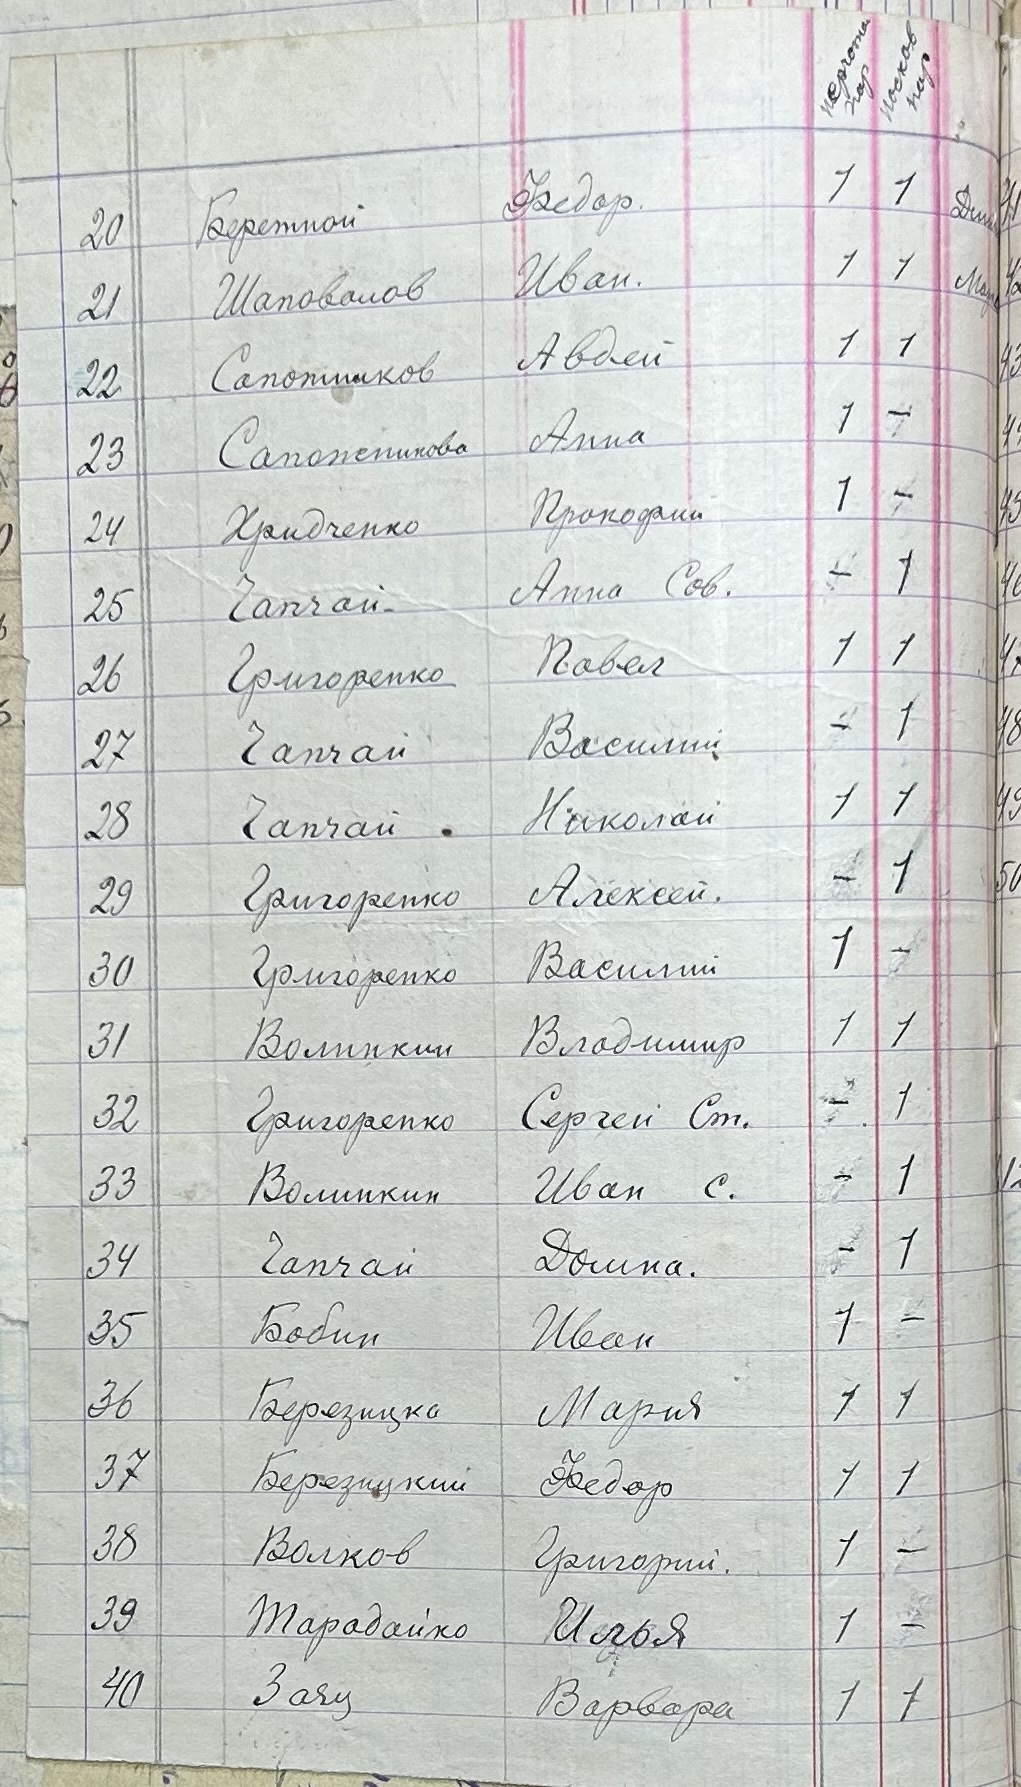 перчоток пар носков пар
20 Бережной Федор. 1 1
21 Шаповалов Иван. 1 1
22 Сапожников Авдей 1 1
23 Сапожникова Анна 1 –
24 Хридченко Прокофий 1 –
25 Чапчай Анна Сов. – 1
26 Григоренко Павел 1 1
27 Чапчай Василий – 1
28 Чапчай Николай 1 1
29 Григоренко Алексей. – 1
30 Григоренко Василий 1 –
31 Волинкин Владимир 1 1
32 Григоренко Сергей Ст. – 1
33 Волинкин Иван С. – 1
34 Чапчай Домна. – 1
35 Бобин Иван 1 –
36 Березицка Мария 1 1
37 Березицкий Федор 1 1
38 Волков Григорий. 1 –
39 Тарадайко Илья 1 –
40 Заяц Варвара 1 1